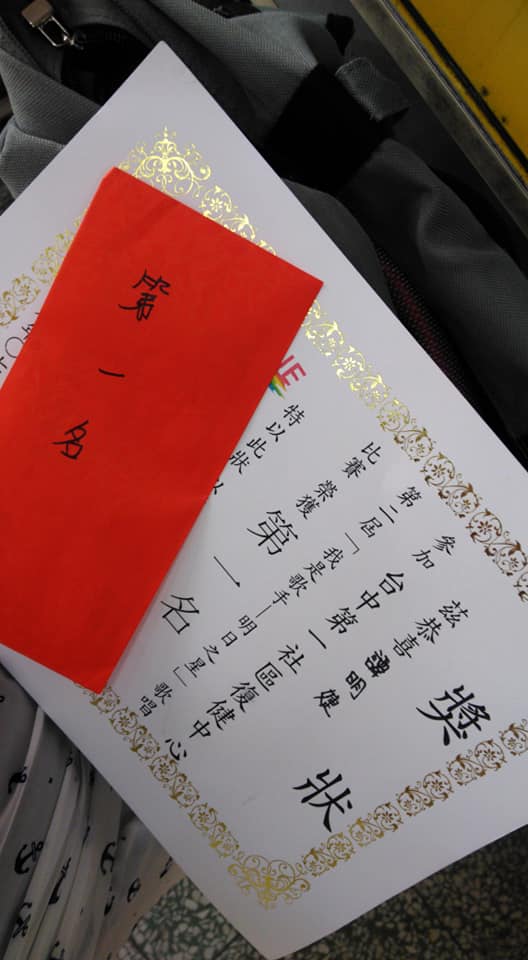 獎狀
茲恭喜 譚明婕
參加 台中第一社區復健中心
第二屆「我是歌手—明日之星」歌唱
比賽 榮獲 第一名
特以此狀以
第一名